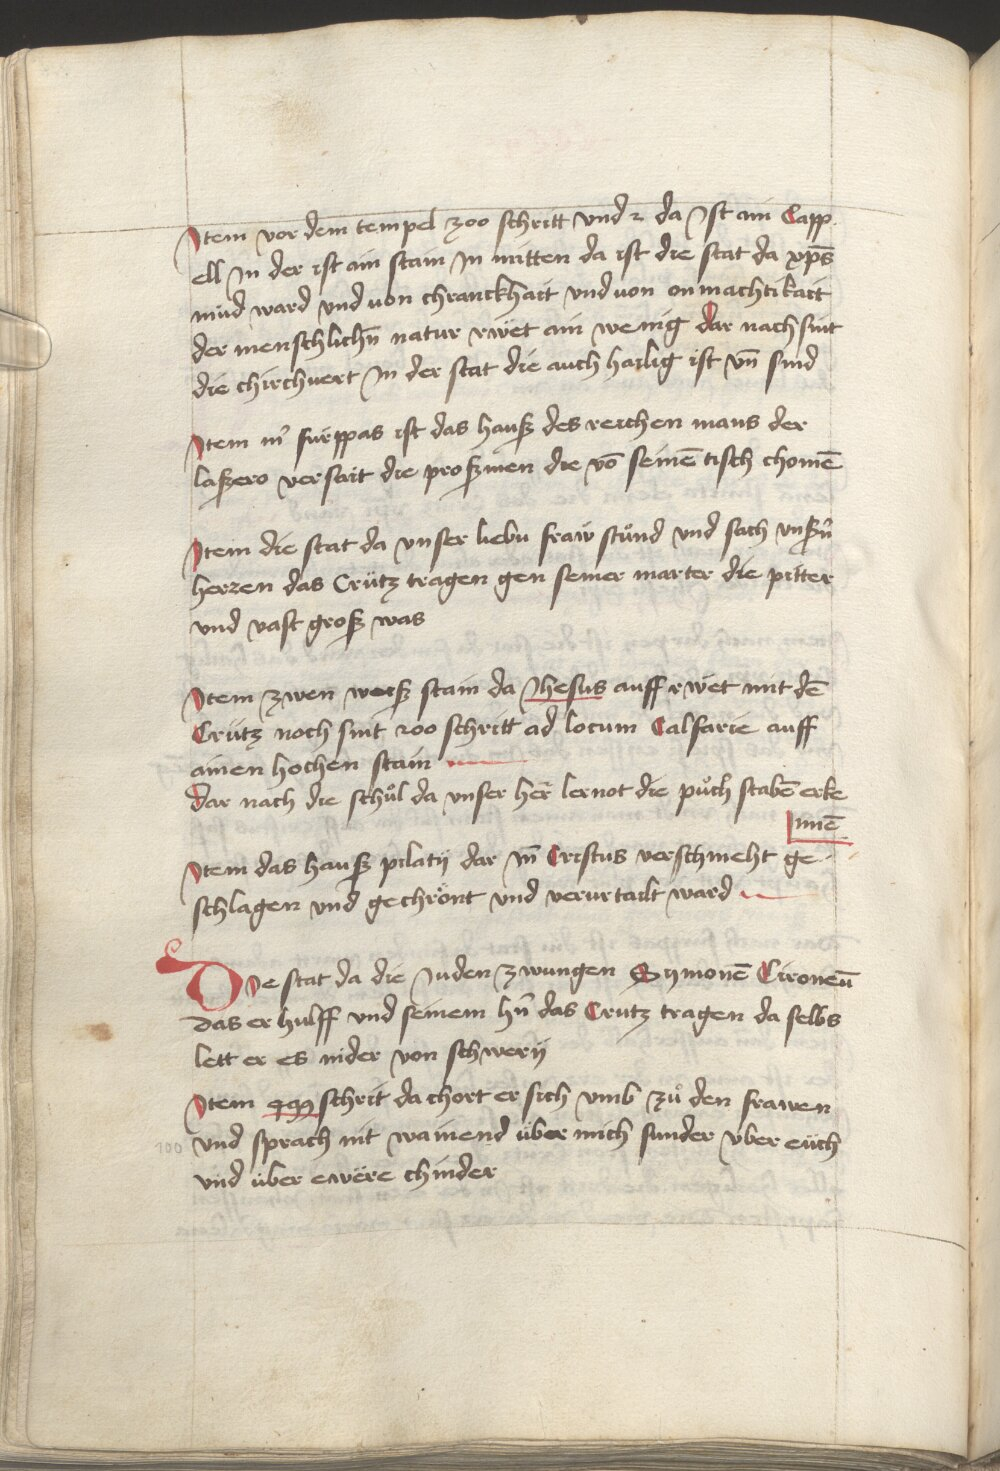 Item vor dem tempel 200 schritt vnd 2 da Ist ain Capp
ell In der ist ain stain In mitten da ist die stat da xp̄s
müd ward vnd von chranckhait vnd von onmachtikait
der menschlichn̄ natur rwët ain wenig dar nach sint
die chirchuert In der stat die auch hailig ist vn̄ sind
Item m̉ fürppas ist das hauß des reichen mans der
laßero versait die proßmen die vō seinē tisch chomē
Item die stat da vnser liebu fraw stůnd vnd sach vnßn̄
herren das Crütz tragen gen seiner marter die pitter
vnd vast groß was
Item zwen weiß stain da Jhesus auff rwet mit dē
Crütz noch sint 200 schritt ad locum Calfarie auff
ainen hochen stain
dar nach die schůl da vnser her̄ lernot die půch stabē erke
nnē
Item das hauß pilatij dar In̄ Cristus verschmeht ge
schlagen vnd gechrönt vnd verurtailt ward
Die stat da die Juden zwungen Symonē Cironeū
das er hulff vnd seinem hn̄ das Crutz tragen da selbs
lett er es nider von schwerij
Item schrit da chort er sich vmb zů den frawen
vnd sprach nit wainend über mich sunder vber eüch
100
vnd über ewëre chinder